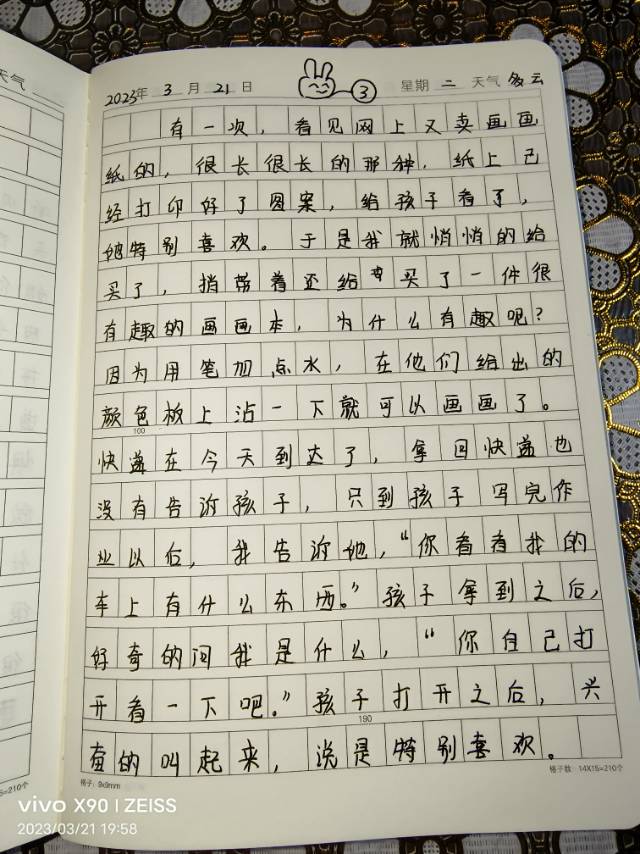 天气
2023年 3月 21日 ③ 星期 二 天气 多云
有一次，看见网上又卖画画
纸的，很长很长的那种，纸上已
经打印好了图案，给孩子看了，
她特别喜欢。于是我就悄悄的给
买了，捎带着还给买了一件很
有趣的画画本，为什么有趣呢？
因为用笔加点水，在他们给出的
颜色板上沾一下就可以画画了。
100
快递在今天到达了，拿回快递也
没有告诉孩子，只到孩子写完作
业以后，我告诉她，“你看看我的
车上有什么东西。”孩子拿到之后，
好奇的问我是什么，“你自己打
开看一下吧。”孩子打开之后，兴
190
奋的叫起来，说是特别喜欢。
格子：9x9mm 格子数：14X15=210个
=210个
vivo X90 | ZEISS
2023/03/21 19:58